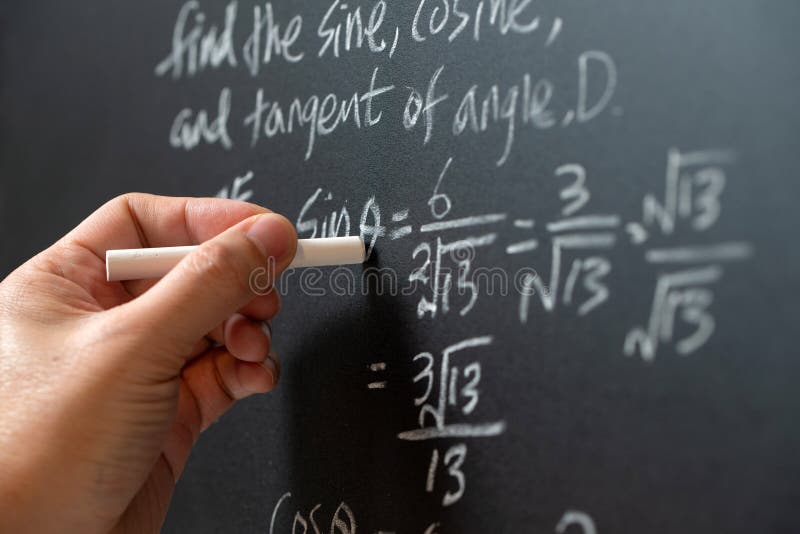 find the sine, cosine,
and tangent of angle, D.
sin θ = 6/2√13 = 3/√13 · √13/√13
= 3√13/13
cos θ =
dreamstime